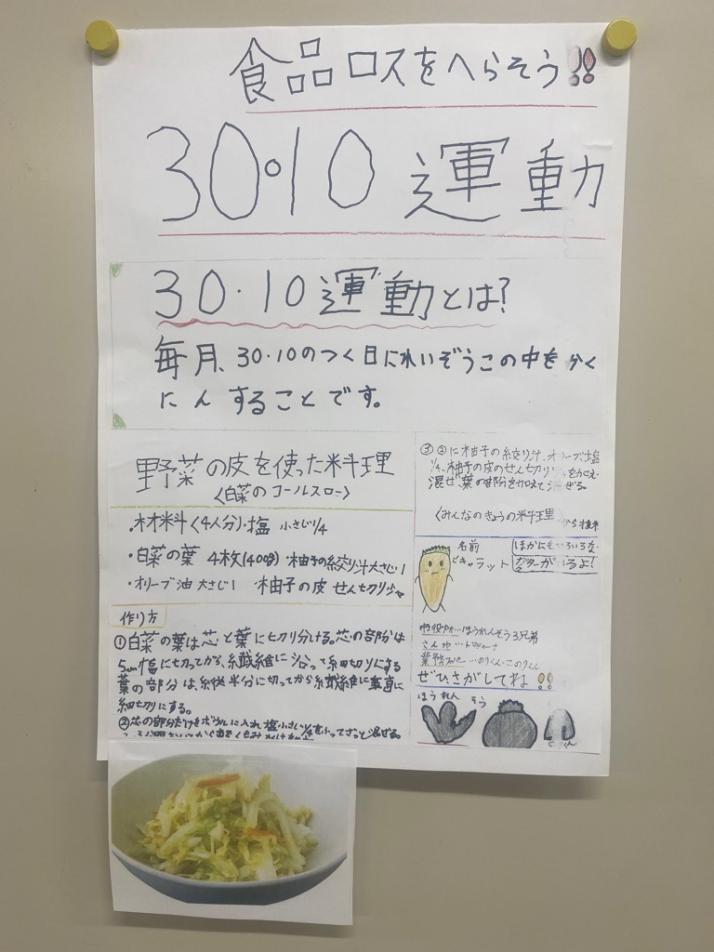 食品ロスをへらそう!!
30・10 運動
30・10 運動とは?
毎月、30・10のつく日にれいぞうこの中をかく
にんすることです。
野菜の皮を使った料理
〈白菜のコールスロー〉
・材料〈4人分〉・塩 小さじ1/4
・白菜の葉 4枚(400g)・柚子の絞り汁大さじ1
・オリーブ油 大さじ1 柚子の皮 せん切り少々
作り方
①白菜の葉は芯と葉に切り分ける。芯の部分は
5cm幅に切ってから、繊維に沿って細切りにする
葉の部分は、縦半分に切ってから繊維に垂直に
細切りにする。
②芯の部分だけをボウルに入れ、塩小さじ1/4をふってざっと混ぜる。
③②に柚子の絞り汁、オリーブ 塩
1/4、柚子の皮のせん切り をかえ
混ぜ、葉の部分を加えて ぜる。
〈みんなのきょうの料理 から
名前
ピキャラット
ほかにもいろいろな
がいるよ!
ほうれんそう3兄弟
ぜひさがしてね!!
ほうれん
そう